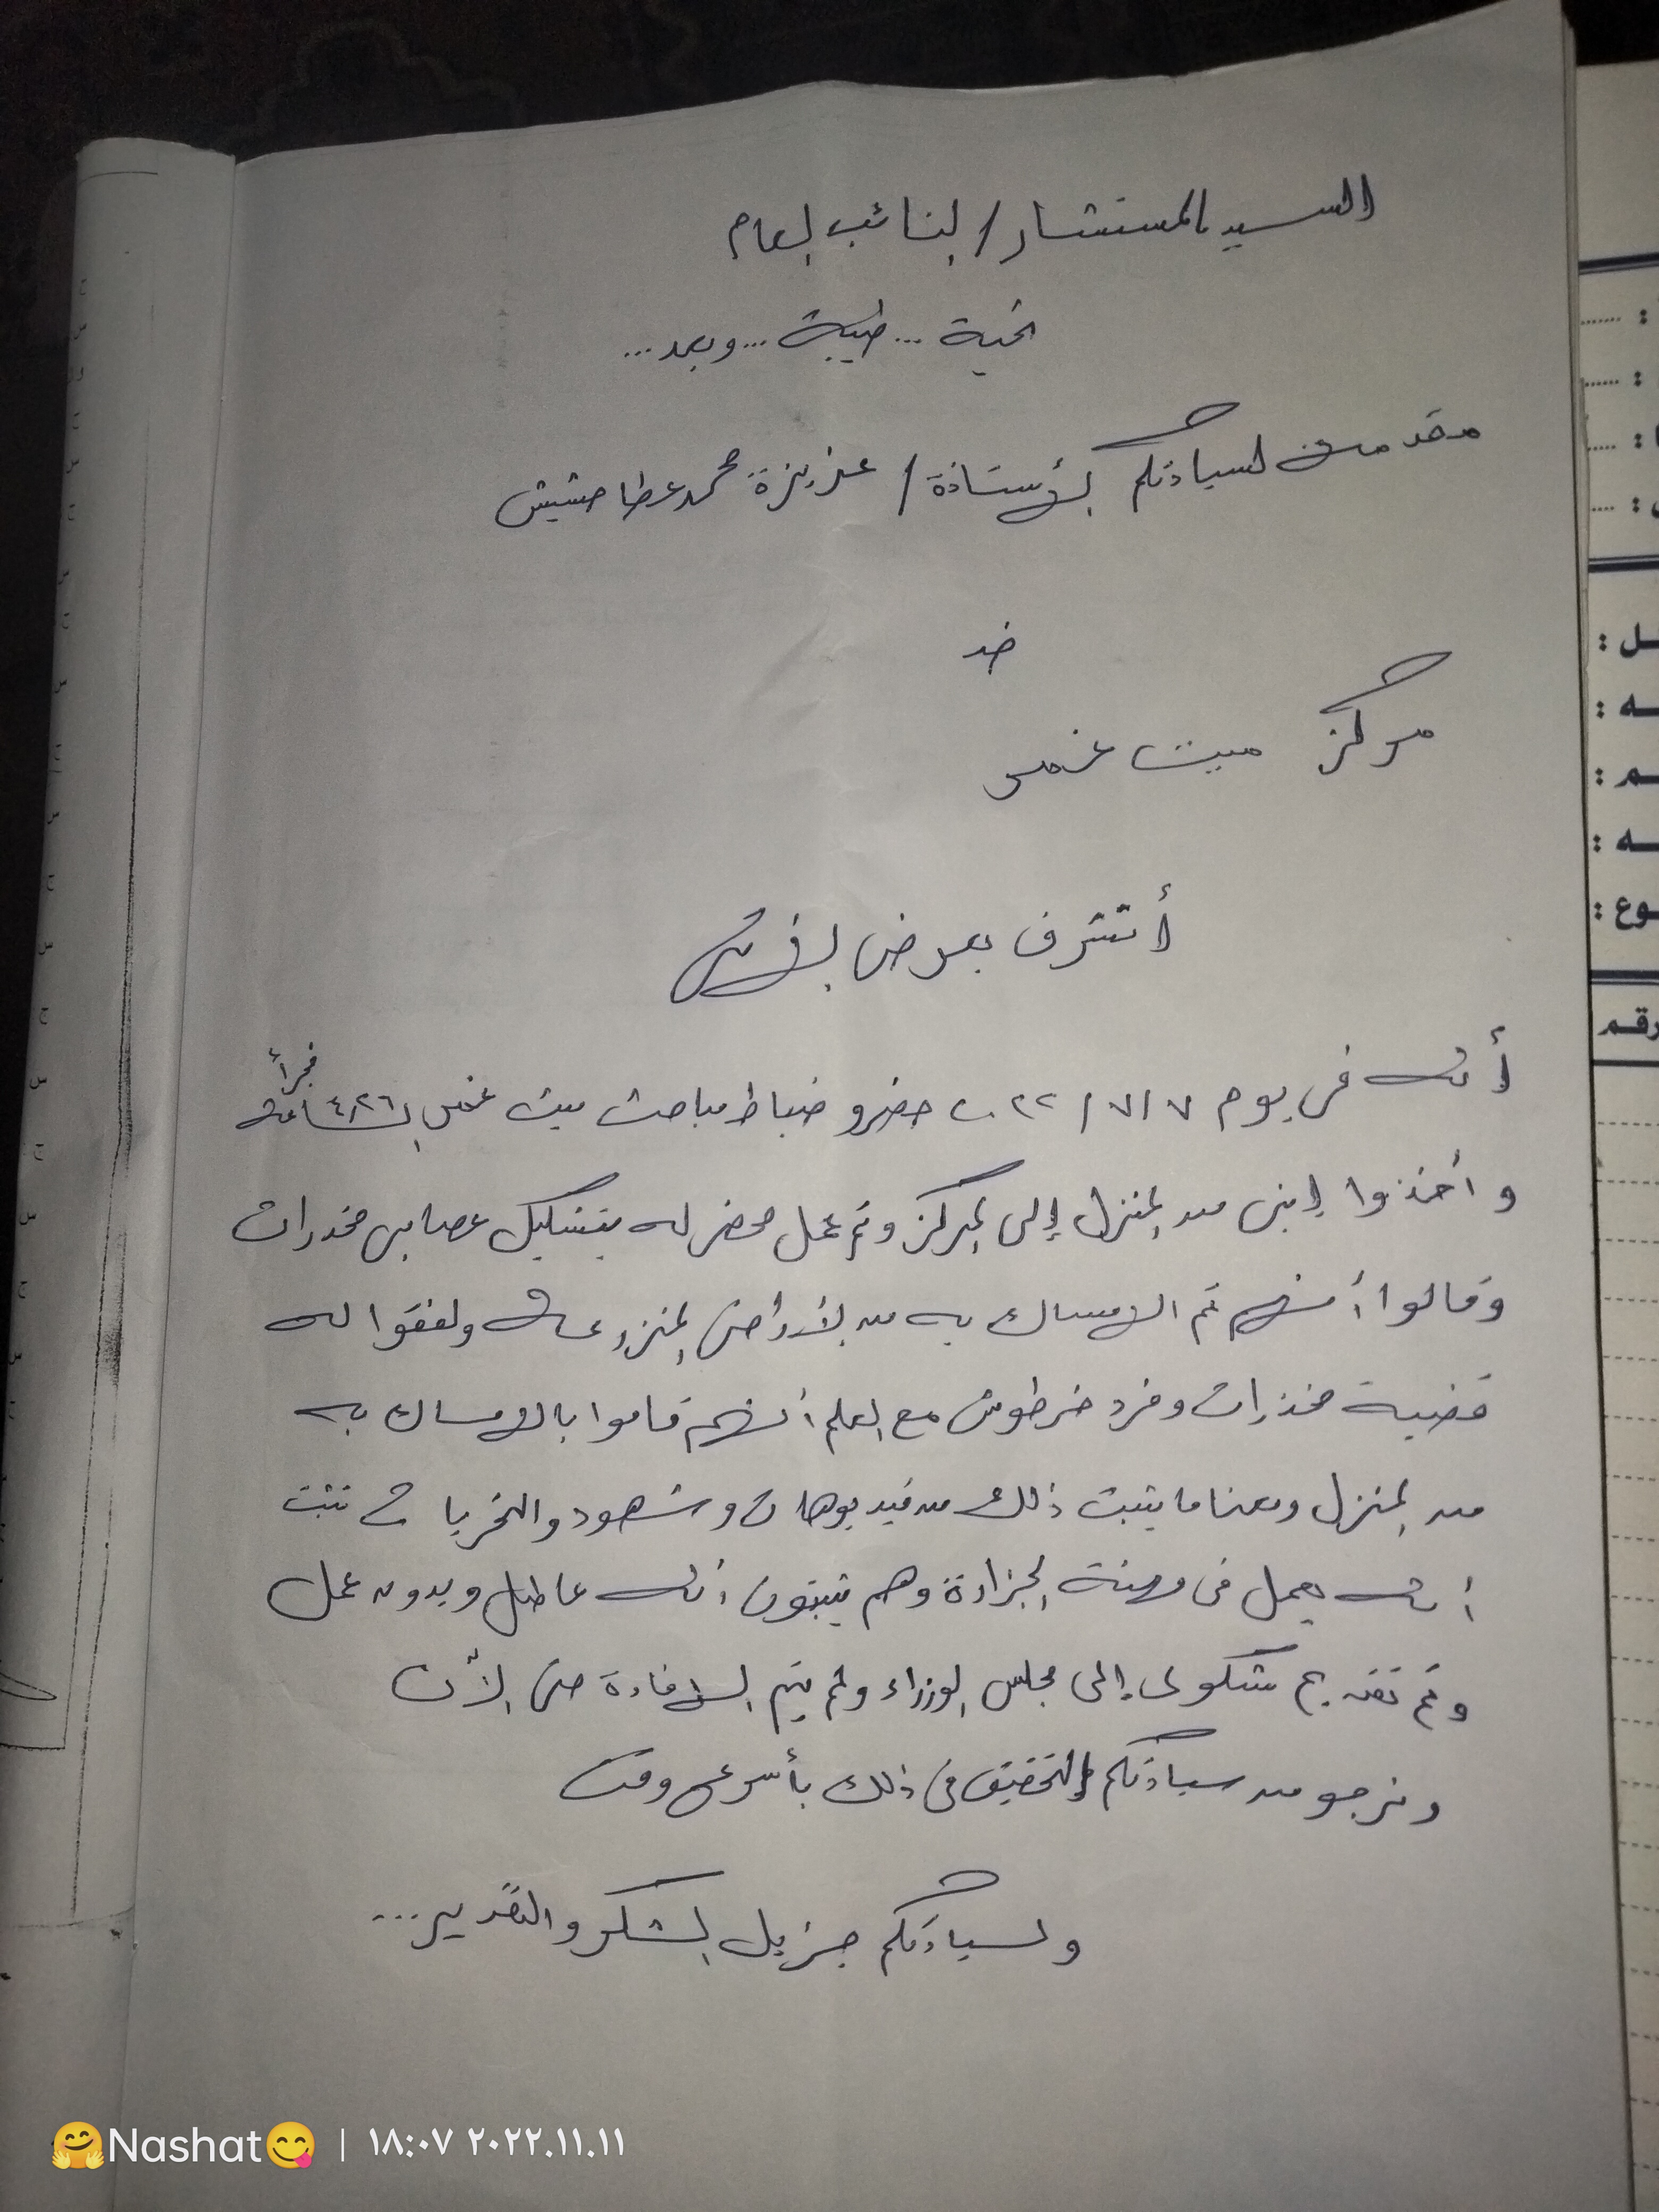 السيد المستشار / النائب العام
تحية ... طيبة ... وبعد ...
مقدمه لسيادتكم الأستاذة / عزيزة محمد عطا حشيش
ضد
مركز ميت غمر
أتشرف بعرض الآتى
أنه فى يوم ٧/٧/٢٠٢٢ حضرو ضباط مباحث ميت غمر الساعة ٤,٢٦ فجراً
و أخذوا إبنى من المنزل إلى المركز وتم عمل محضر له بتشكيل عصابى مخدرات
وقالوا أنهم تم الامساك به من الأراضى المزروعه ولفقوا له
قضية مخدرات وفرد خرطوش مع العلم أنهم قاموا بالامساك به
من المنزل ومعنا ما يثبت ذلك من فيديوهات وشهود والتحريات تثبت
أنه يعمل فى مهنة الجزارة وهم يثبتون أنه عاطل وبدون عمل
وتم تقديم شكوى إلى مجلس الوزراء ولم يتم الافادة حتى الآن
ونرجو من سيادتكم التحقيق فى ذلك بأسرع وقت
ولسيادتكم جزيل الشكر والتقدير ...
ـل :
ـه :
ـم :
ـه :
ـوع :
رقم
🤗Nashat😋 | ١٨:٠٧ ٢٠٢٢.١١.١١